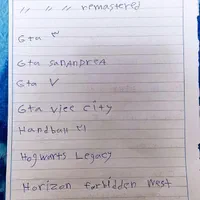 〃 〃 〃 remastered
Gta
Gta sanAndreA
Gta V
Gta vice city
Handball
Hogwarts Legacy
Horizan forbidden west